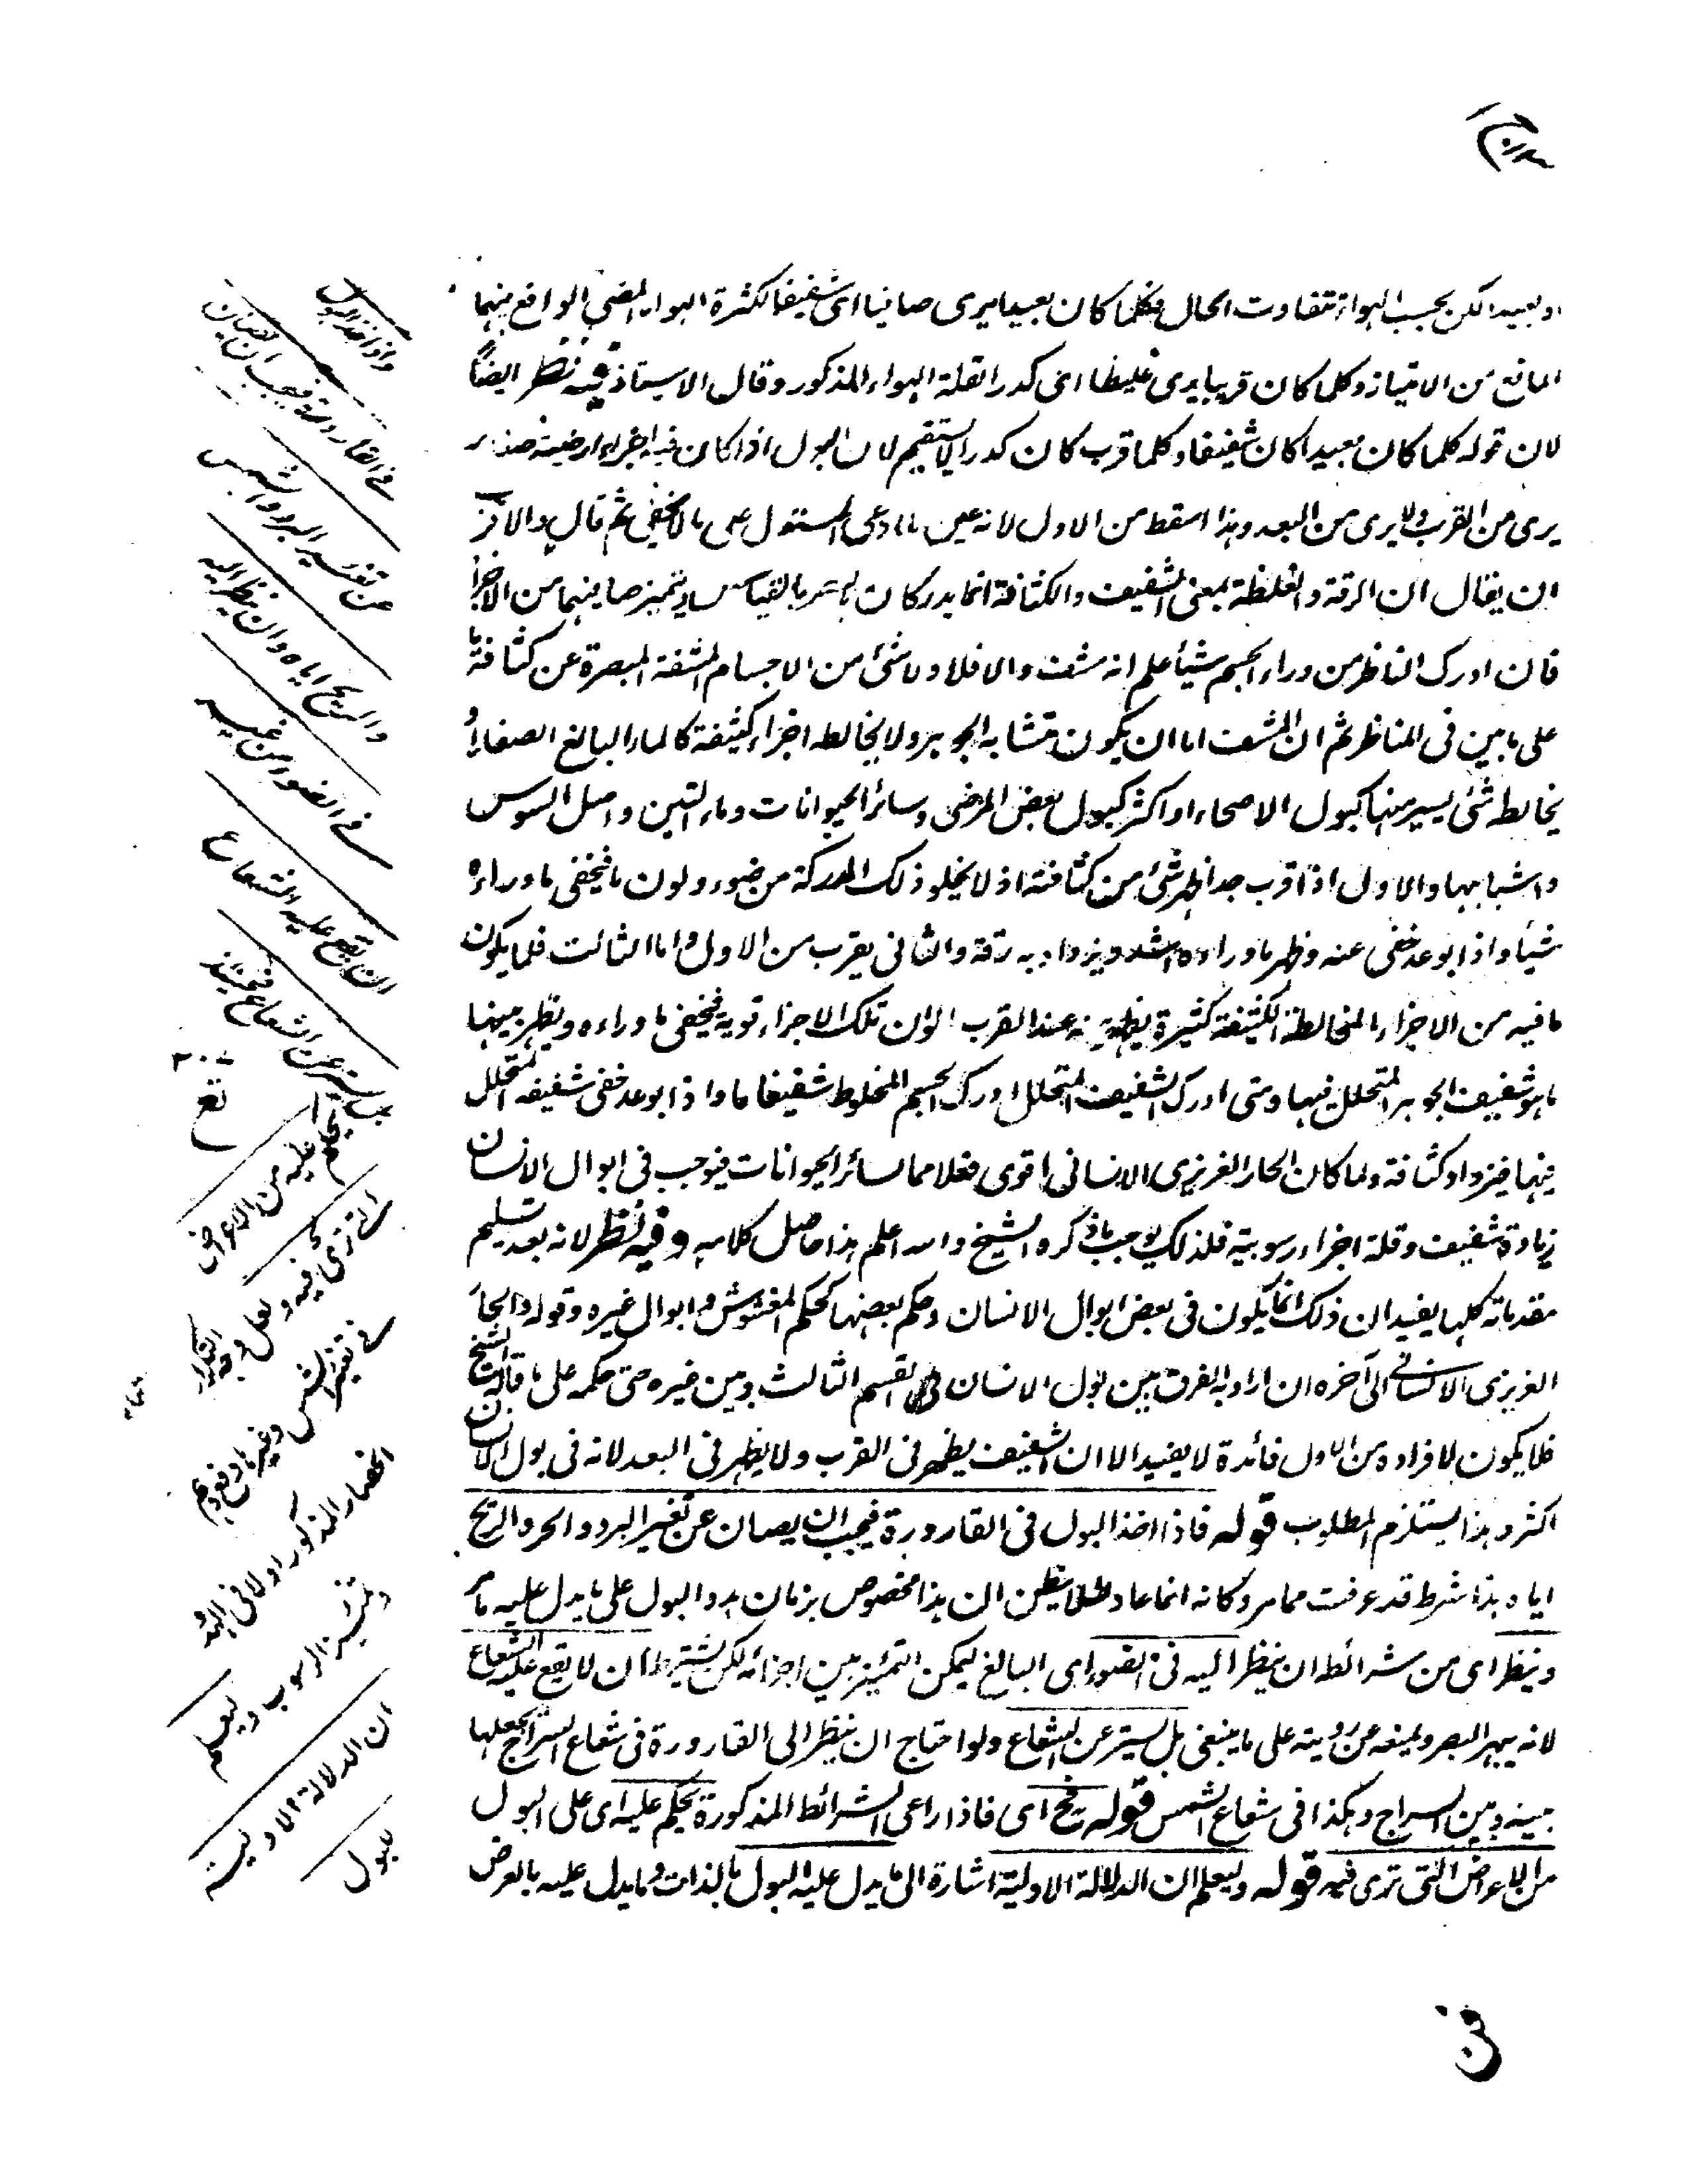 او بعيدا لكن بحسب الهواء تتفاوت الحال فكلما كان بعيدا يرى صافيا اى شفيفا لكثرة الهواء المضى الواقع بينهما
المانع من الامتياز وكلما كان قريبا يرى غليظا اى كدرا لقلة الهواء المذكور وقال الاستاذ فيه نظر ايضا
لان قوله كلما كان بعيدا كان شفيفا وكلما قرب كان كدرا لا يستقيم لان البول اذا كان فيه اجزاء ارضية صغار
يرى من القرب ولا يرى من البعد وهذا اسقط من الاول لانه عين ما ادعى المسئول على ما لا يخفى ثم قال والاقرب
ان يقال ان الرقة والغلظة بمعنى الشفيف والكثافة انما يدركان بالقياس
فان ادرك الناظر من وراء الجسم شيأ علم انه مشف والا فلا ولا شئ من الاجسام المشفة المبصرة عن كثافة ما
على ما بين فى المناظر ثم ان المشف اما ان يكون متشابه الجوهر ولا يخالطه اجزاء كثيفة كالماء البالغ الصفا او
يخالطه شئ يسير منها كبول الاصحاء او اكثر كبول بعض المرضى وسائر الحيوانات وماء التين واصل السوس
واشباهها والاول اذا قرب جدا ظهر شئ من كثافته اذ لا يخلو ذلك المدركة من ضوء ولون ما فيخفى ما وراءه
شيأ واذا بوعد خفى عنه وظهر ما وراءه اشد ويزداد به رقة والثانى يقرب من الاول واما الثالث فلما يكون
ما فيه من الاجزاء المخالطة الكثيفة كثيرة عند القرب الوان تلك الاجزاء قوية فيخفى ما وراءه ويظهر بينها
ما هو شفيف الجوهر المتخلل فيها ومتى ادرك الشفيف المتخلل ادرك الجسم المخلوط شفيفا ما واذا بوعد خفى شفيفه المتخلل
بينها فيزداد كثافة ولما كان الحار الغريزى الانسانى اقوى فعلا مما سائر الحيوانات فيوجب فى ابوال الانسان
زيادة شفيف وقلة اجزاء رسوبية فلذلك يوجب ما ذكره الشيخ والله اعلم هذا حاصل كلامه وفيه نظر لانه بعد تسليم
مقدماته كلها يفيد ان ذلك انما يكون فى بعض ابوال الانسان وحكم بعضها كحكم المغشوش وابوال غيره وقوله والحار
الغريزى الانسانى الى آخره ان اراد به الفرق بين بول الانسان فى القسم الثالث وبين غيره حتى حكمه على ما قاله الشيخ
فلا يكون لافراده من الاول فائدة لا يفيد الا ان الشفيف يظهر فى القرب ولا يظهر فى البعد لانه فى بول الانسان
اكثر وهذا يستلزم المطلوب قوله فاذا اخذ البول فى القارورة فيجب ان يصان عن تغيير البرد والحر والريح
اياه هذا شرط قد عرفت مما مر وكانه انما عاد لئلا يظن ان هذا مخصوص بزمان بدو البول على ما يدل عليه ما مر
وينظر اى من شرائط ان ينظر اليه فى الضوء اى البالغ ليمكن التمييز بين اجزائه لكن بشترط ان لا يقع عليه الشعاع
لانه يبهر البصر ويمنعه عن رؤيته على ما ينبغى بل يستر عن الشعاع ولو احتاج ان ينظر الى القارورة فى شعاع السراج يجعلها
بينه وبين السراج وهكذا فى شعاع الشمس قوله فح اى فاذا راعى الشرائط المذكورة يحكم عليه اى على البول
من الاعراض التى ترى فيه قوله وليعلم ان الدلالة الاولية اشارة الى ما يدل عليه البول بالذات وما يدل عليه بالعرض
فى
واذا اخذ البول
فى القارورة فيجب ان يصان
عن تغيير البرد والشمس
والريح اياه وان ينظر اليه
فى الضوء من غير
ان يقع عليه الشعاع
بل يستر عن الشعاع فحينئذ
٣٠٧
يحكم عليه من الاعراض
التى ترى فيه ولعل وجه التكرار
المذكور اولا فى البرد
وليعلم
ان الدلالة الاولية
للبول